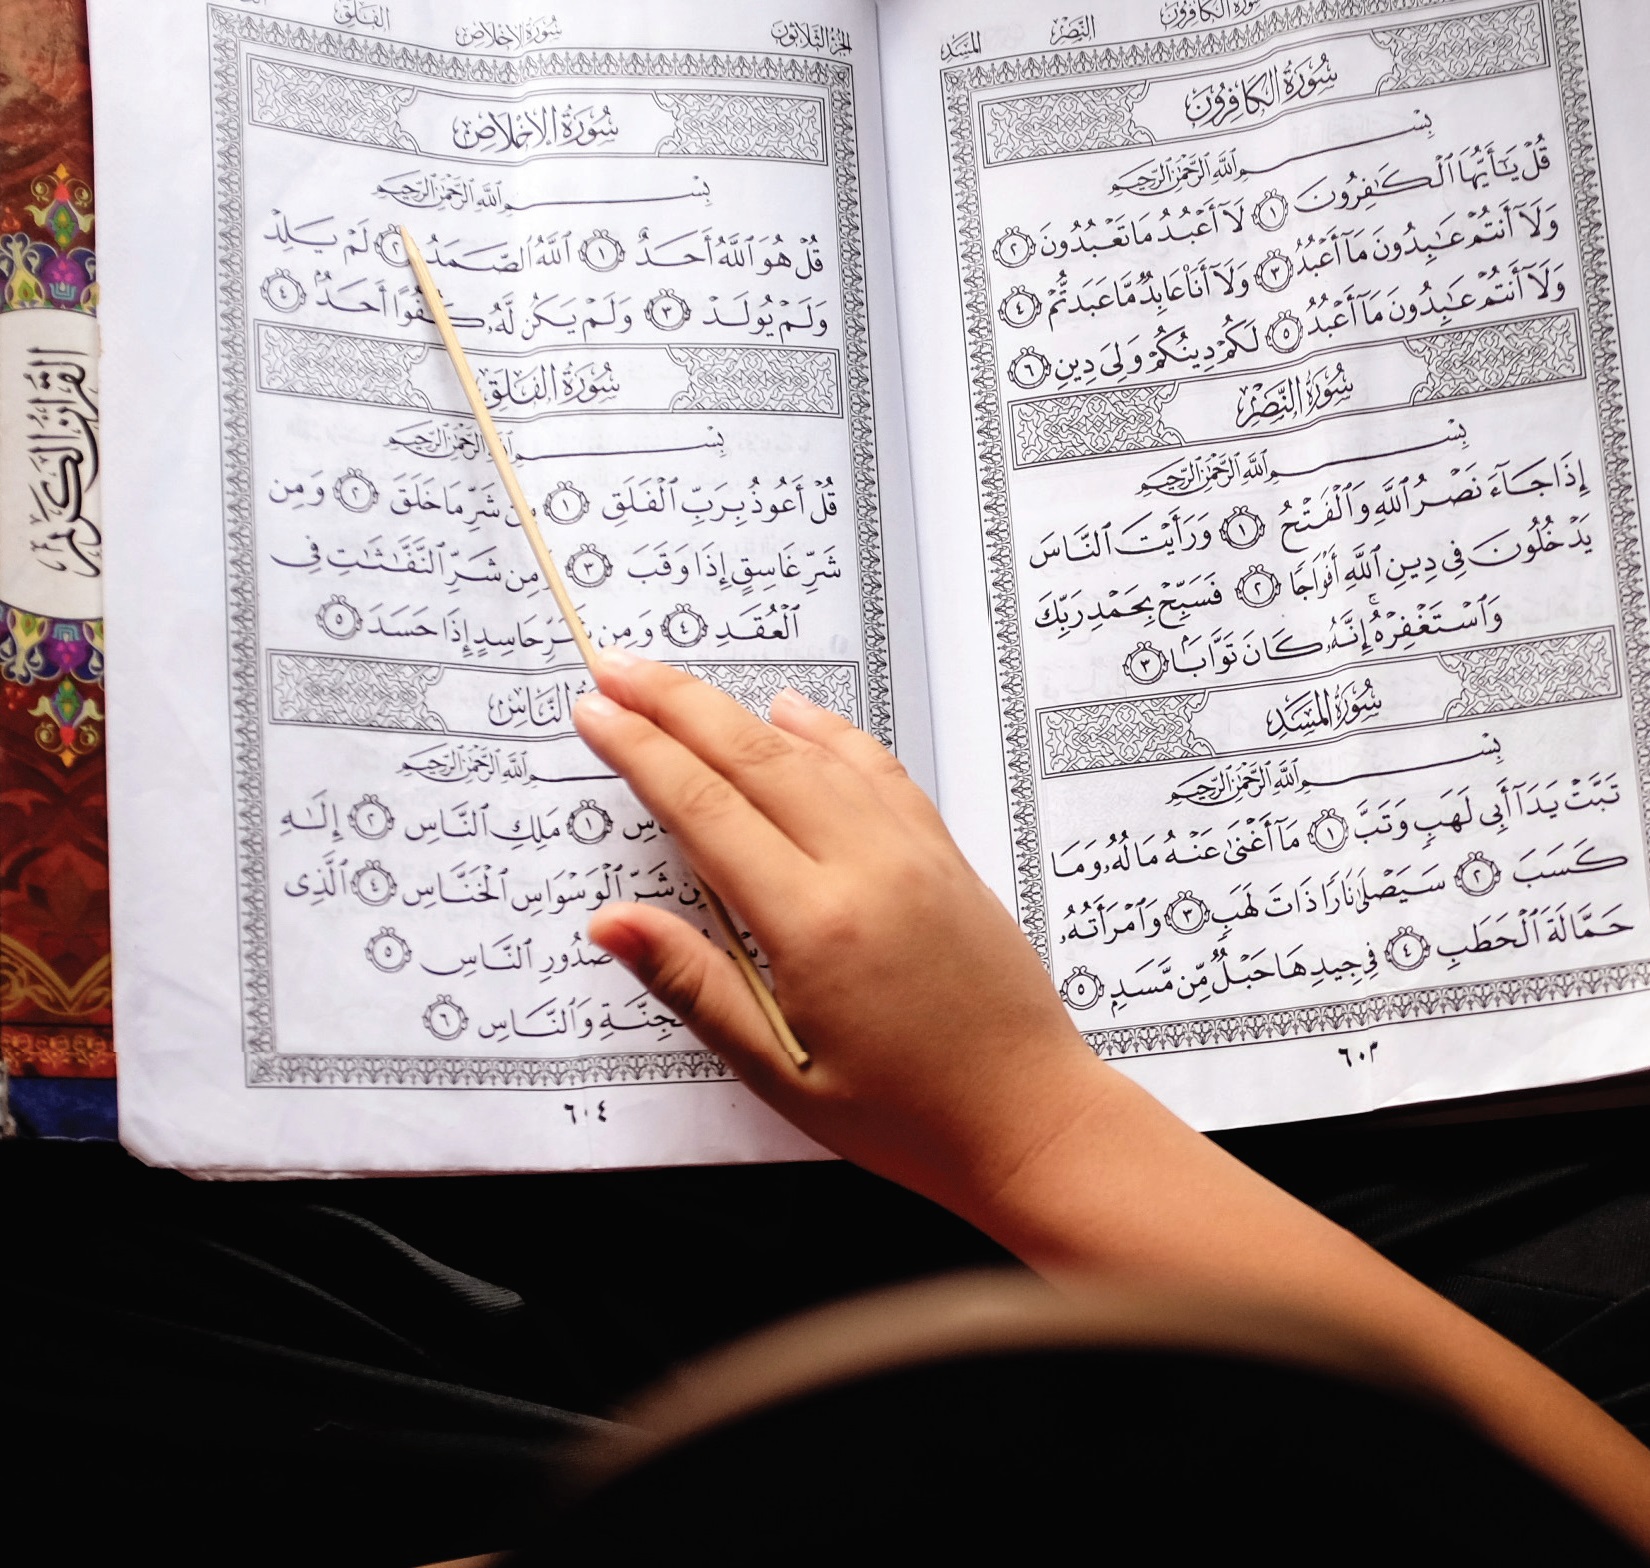 المسد
النصر
سورة الكافرون
سُورَةُ الكَافِرُون
بِسْمِ اللَّهِ الرَّحْمَٰنِ الرَّحِيمِ
قُلْ يَٰٓأَيُّهَا ٱلْكَٰفِرُونَ ١ لَآ أَعْبُدُ مَا تَعْبُدُونَ ٢
وَلَآ أَنتُمْ عَٰبِدُونَ مَآ أَعْبُدُ ٣ وَلَآ أَنَا۠ عَابِدٌ مَّا عَبَدتُّمْ ٤
وَلَآ أَنتُمْ عَٰبِدُونَ مَآ أَعْبُدُ ٥ لَكُمْ دِينُكُمْ وَلِىَ دِينِ ٦
سُورَةُ النَّصْر
بِسْمِ اللَّهِ الرَّحْمَٰنِ الرَّحِيمِ
إِذَا جَآءَ نَصْرُ ٱللَّهِ وَٱلْفَتْحُ ١ وَرَأَيْتَ ٱلنَّاسَ
يَدْخُلُونَ فِى دِينِ ٱللَّهِ أَفْوَاجًا ٢ فَسَبِّحْ بِحَمْدِ رَبِّكَ
وَٱسْتَغْفِرْهُ ۚ إِنَّهُۥ كَانَ تَوَّابًۢا ٣
سُورَةُ المَسَد
بِسْمِ اللَّهِ الرَّحْمَٰنِ الرَّحِيمِ
تَبَّتْ يَدَآ أَبِى لَهَبٍ وَتَبَّ ١ مَآ أَغْنَىٰ عَنْهُ مَالُهُۥ وَمَا
كَسَبَ ٢ سَيَصْلَىٰ نَارًا ذَاتَ لَهَبٍ ٣ وَٱمْرَأَتُهُۥ
حَمَّالَةَ ٱلْحَطَبِ ٤ فِى جِيدِهَا حَبْلٌ مِّن مَّسَدٍۭ ٥
٦٠٣
الجزء الثلاثون
سورة الإخلاص
الفلق
سُورَةُ الإِخْلَاص
بِسْمِ اللَّهِ الرَّحْمَٰنِ الرَّحِيمِ
قُلْ هُوَ ٱللَّهُ أَحَدٌ ١ ٱللَّهُ ٱلصَّمَدُ ٢ لَمْ يَلِدْ
وَلَمْ يُولَدْ ٣ وَلَمْ يَكُن لَّهُۥ كُفُوًا أَحَدٌۢ ٤
سُورَةُ الفَلَق
بِسْمِ اللَّهِ الرَّحْمَٰنِ الرَّحِيمِ
قُلْ أَعُوذُ بِرَبِّ ٱلْفَلَقِ ١ مِن شَرِّ مَا خَلَقَ ٢ وَمِن
شَرِّ غَاسِقٍ إِذَا وَقَبَ ٣ وَمِن شَرِّ ٱلنَّفَّٰثَٰتِ فِى
ٱلْعُقَدِ ٤ وَمِن شَرِّ حَاسِدٍ إِذَا حَسَدَ ٥
النَّاس
بِسْمِ اللَّهِ الرَّحْمَٰنِ الرَّحِيمِ
١ مَلِكِ ٱلنَّاسِ ٢ إِلَٰهِ
مِن شَرِّ ٱلْوَسْوَاسِ ٱلْخَنَّاسِ ٤ ٱلَّذِى
صُدُورِ ٱلنَّاسِ ٥
وَٱلنَّاسِ ٦
٦٠٤
القرآن الكريم